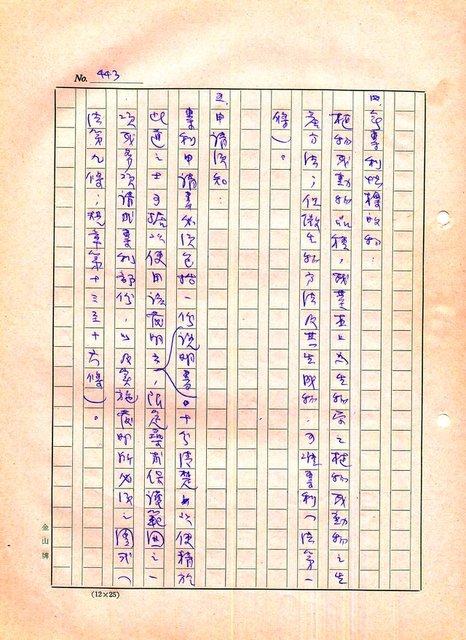 No. 443
四、可專利性標的物：
植物或動物品種，或基本上為生物學之植物或動物之生
產方法；但微生物方法及其生成物，可准專利（法第一
條）。
五、申請須知：
專利申請書必須包括一份說明書。十分清楚以便精於
此道之士可據以使用該發明之，限定尋求保護範圍之一
項或多項請求專利部份，以及實施發明所必須之圖式（
法第九條；規章第十三至十六條）。
金山牌
(12×25)